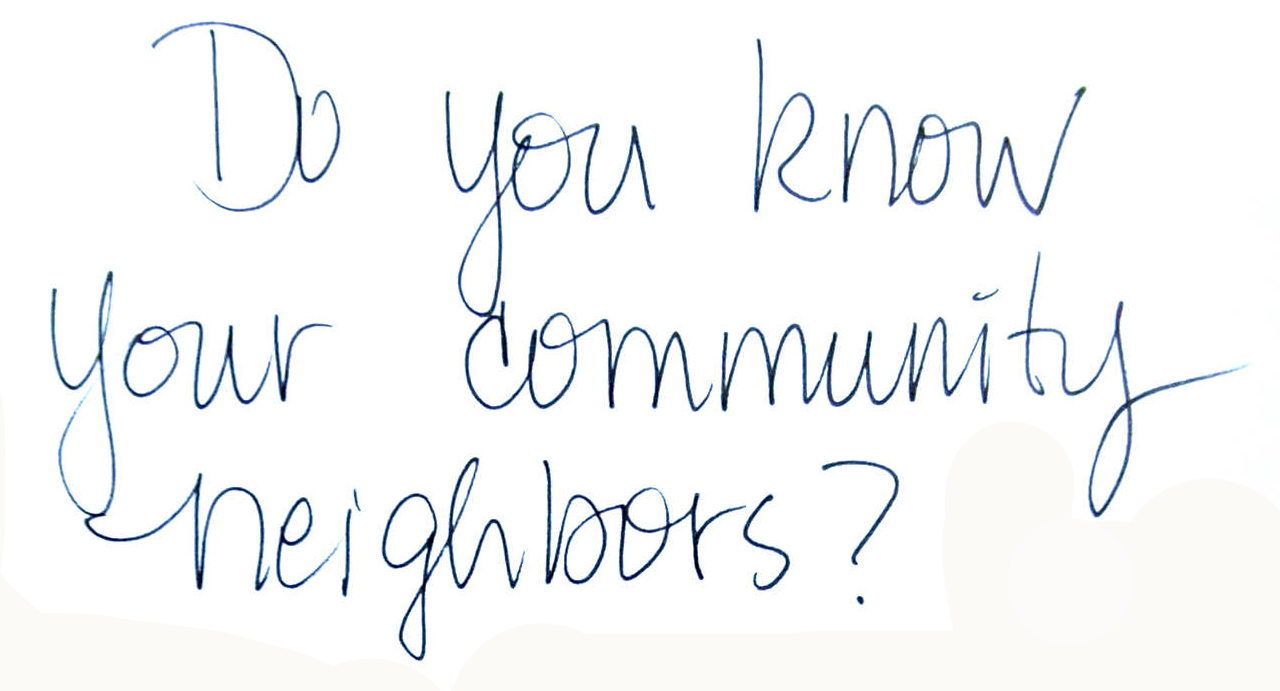 Do you know
your community
neighbors?